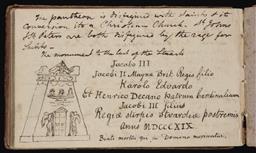 The pantheon is disfigured with saints & its
conversion to a Christian Church. St Johns
St Peters are both disfigured by the rage for
The monument to the last of the Stuarts
Jacobo III
Jacobi II Magnæ Brit Regis filio
Karolo Edvardo
Et Henrico Decano patrum Cardinalium
Jacobi III filiis
Regiæ stirpis Stvardiæ postremis
Anno MDCCCXIX
Beati mortui qui in Domino moriuntur